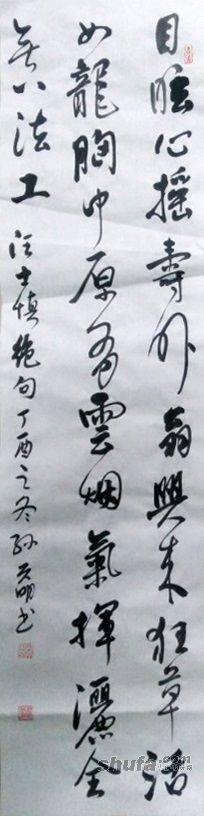 目眩心摇壽外翁興来狂草活
如龍胸中原有雲烟氣揮灑全
無八法工 汪士慎绝句丁酉之冬孙明书
shufa.com